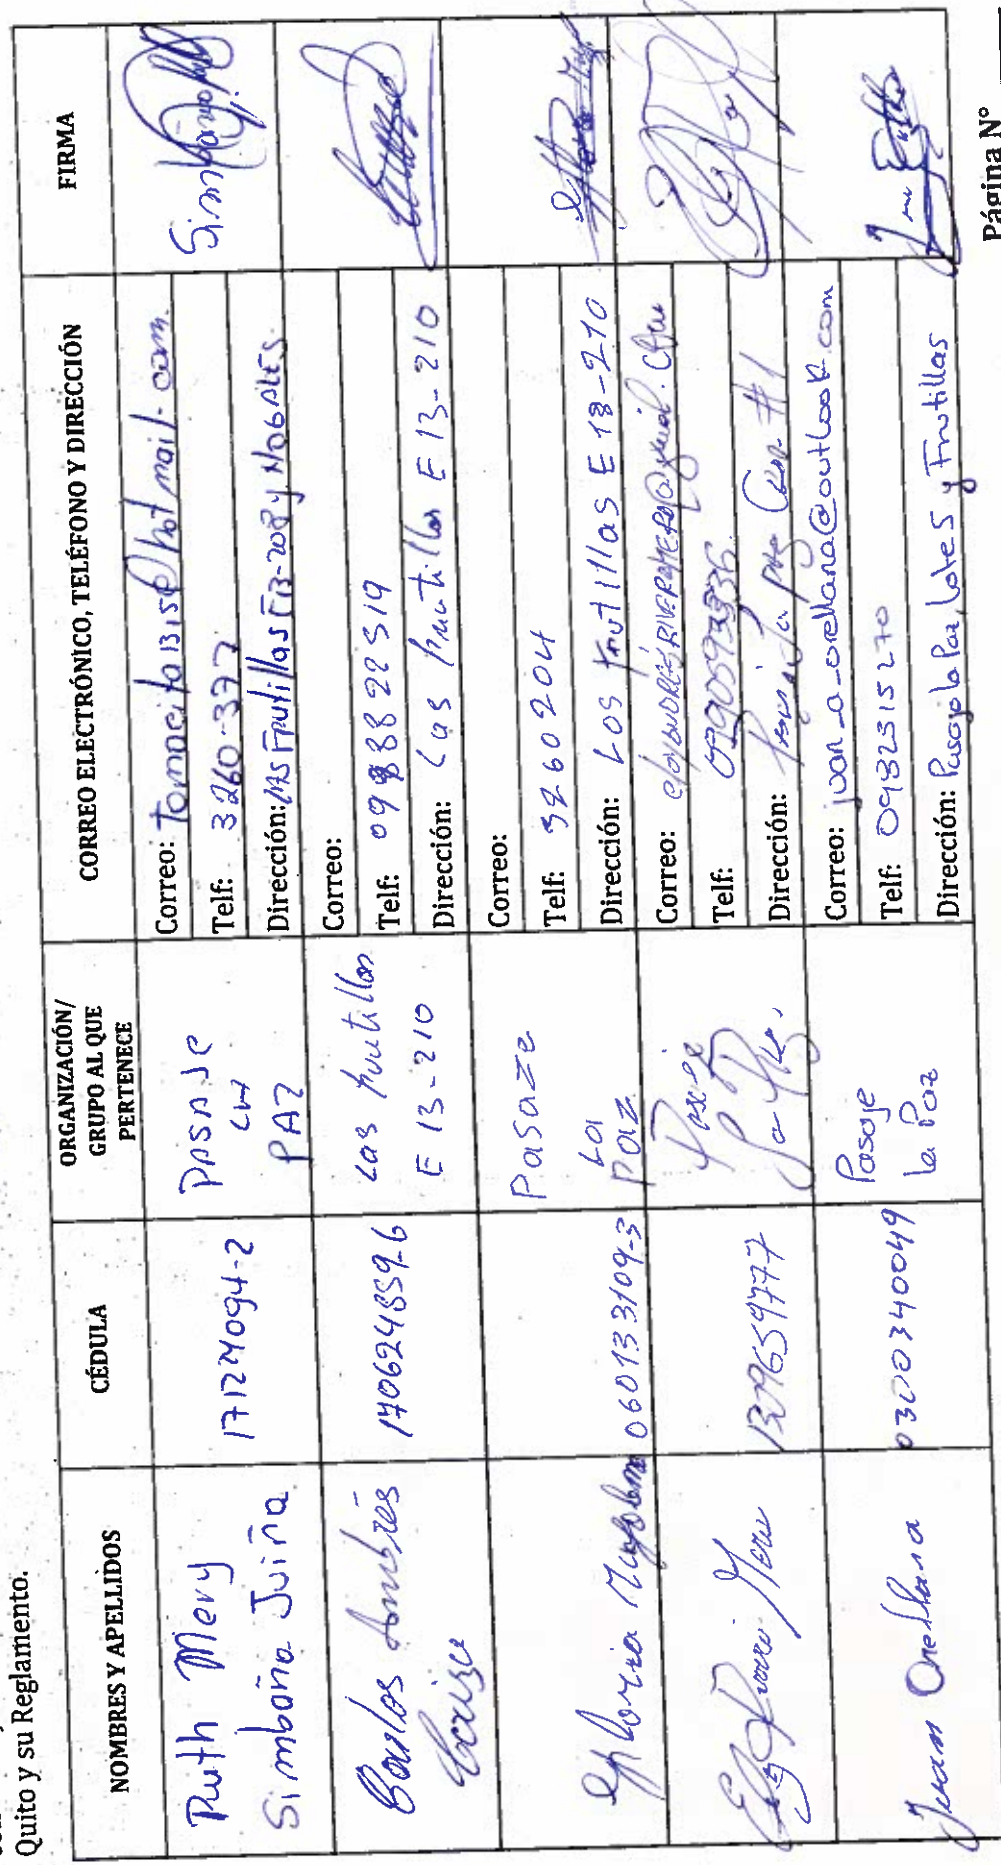 Quito y su Reglamento.
NOMBRES Y APELLIDOS
CÉDULA
ORGANIZACIÓN/
GRUPO AL QUE
PERTENECE
CORREO ELECTRÓNICO, TELÉFONO Y DIRECCIÓN
FIRMA
Ruth Mery
Simbaña Juiña
171274094-2
PASAJE
LA
PAZ
Correo: tomasita1315@hotmail.com.
Telf: 3260-377
Dirección: LAS Frutillas E13-208 y NOGALES.
Carlos Ambrés
170624859-6
Las frutillas
E 13-210
Correo:
Telf: 0998822519
Dirección: Las frutillas E 13-210
Gloria
060133109-3
Pasaze
La
Paz
Correo:
Telf: 3260204
Dirección: Los frutillas E 18-210
1309659777
Pasaje
La Paz
Correo:
Telf: 0990593336
Dirección: #1
Juan Orellana
0300340049
Pasaje
la Paz
Correo: juan_a_orellana@outlook.com
Telf: 0982315270
Dirección: Pasaje la Paz, Lote 5 y Frutillas
Página N°